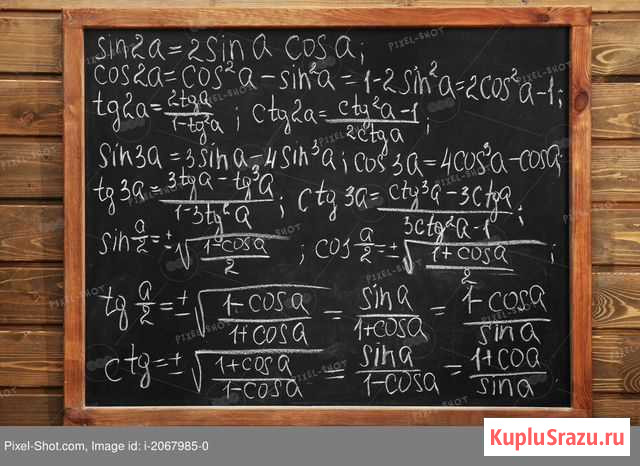 sin2a=2sina cosa;
cos2a=cos²a-sin²a=1-2sin²a=2cos²a-1;
tg2a=2tga/1-tg²a; ctg2a=ctg²a-1/2ctga;
sin3a=3sina-4sin³a; cos3a=4cos³a-cosa;
tg3a=3tga-tg³a/1-3tg²a; ctg3a=ctg³a-3ctga/3ctg²a-1;
sin a/2=±√1-cosa/2; cos a/2=±√1+cosa/2;
tg a/2=±√1-cosa/1+cosa=sina/1+cosa=1-cosa/sina
ctg=±√1+cosa/1-cosa=sina/1-cosa=1+coa/sina
PIXEL-SHOT
Pixel-Shot.com, Image id: i-2067985-0
KupluSrazu.ru